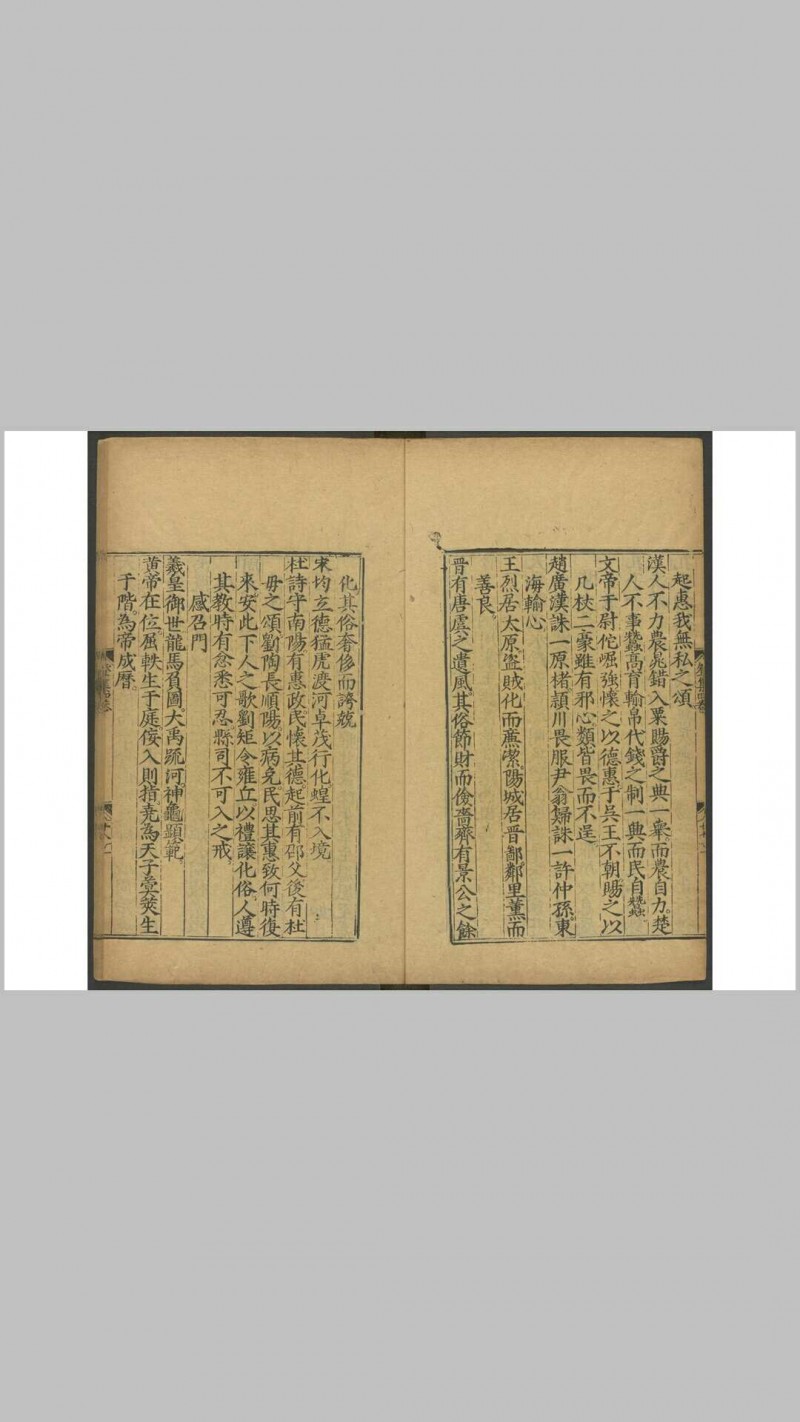 起惠我無私之頌
漢人不力農晁錯入粟賜爵之典一舉而農自力楚
人不事蠶高育輸帛代錢之制一典而民自蠶
文帝于尉佗崛強懷之以德惠于吳王不朝賜之以
几杖二豪雖有邪心類皆畏而不逞
趙廣漢誅一原楮頴川畏服尹翁歸誅一許仲孫東
海輸心
王烈居太原盜賊化而廉潔陽城居晉鄙鄰里薰而
善良
晉有唐虞之遺風其俗節財而儉嗇齊有景公之餘
化其俗奢侈而誇競
宋均立德猛虎渡河卓茂行化蝗不入境
杜詩守南陽有惠政民懷其德起前有邵父後有杜
毋之頌劉陶長順陽以病免民思其惠致何時復
來安此下人之歌劉矩令雍丘以禮讓化俗人遵
其教時有忿恚可忍縣司不可入之戒
感召門
羲皇御世龍馬負圖大禹䟽河神龜顯範
黃帝在位屈軼生于庭佞入則指堯為天子蓂莢生
于階為帝成曆